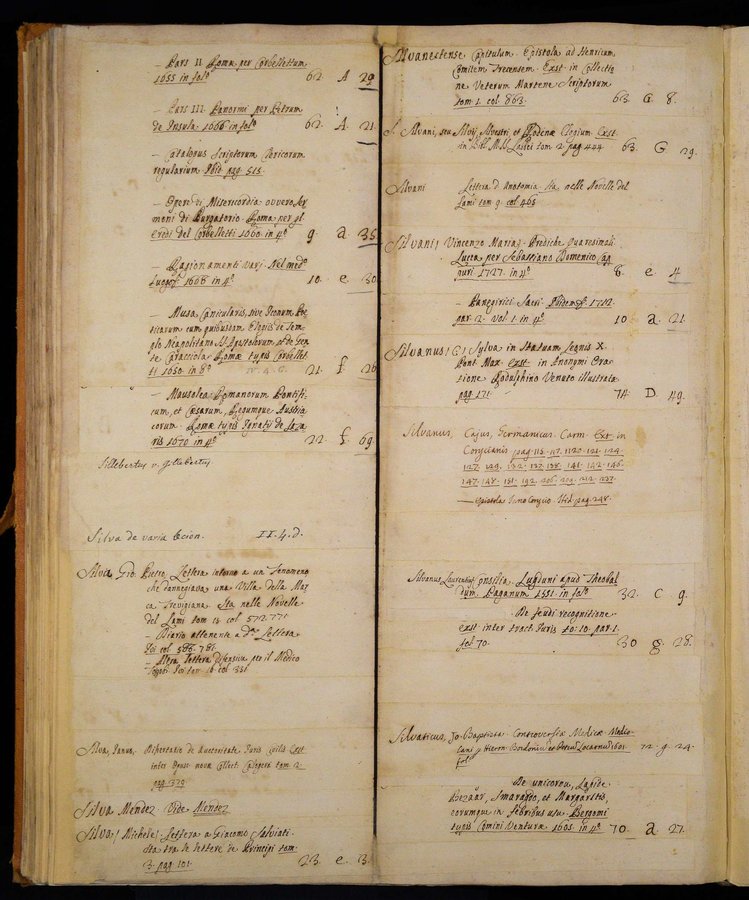 — Pars II. Romæ per Corbellettum
1655 in folº 62. A 29
— Pars III. Panormi per Petrum
de Insula. 1666 in folº 62. A. 21
— Catalogus Scriptorum Clericorum
regularium Ibid pag. 515.
— Opere di Misericordia ovvero Ser
moni di Purgatorio. Roma per gl'
eredi del Corbelletti 1660. in 4º 9 a 35
— Ragionamenti varj. Nel medº
luogo 1608 in 4º 10 e 30
— Musa Canicularis, sive Iconum Poe
ticarum cum quibusdam Elogiis de Tem
plo Neapolitano SS. Apostolorum, et de Gen
te Caracciola Romæ typis Corbellet
ti 1650. in 8º 21. f. 26
— Mausolea Romanorum Pontifi
cum, et Cæsarum, Regumque Austria
corum. Romæ typis Ignatij de Laza
ris 1670 in 4º 22 f. 69
Sillebertus v. Gillebertus
Silva de varia lecion. II. 4. d.
Silva Gio. Pietro Lettera intorno a un Fenomeno
che danneggiava una Villa della Mar
ca Trevigiana. Sta nelle Novelle
del Lami tom 15 col 572. 771
— Diario attenente a dª Lettera
Ivi col 586. 781.
— Altra lettera difensiva per il Medico
Ivi tom 16 col 331
Silva, Janus, Dissertatio de Auctoritate Juris Civilis Ext
inter nova Collect. tom 2.
pag 379
Silva Mendez. Vide Mendez
Silva, Michele, Lettera a Giacomo Salviati.
Sta tra le lettere de Principi tom.
3. pag 101. 23 e. 3.
Silvanectense Capitulum. Epistola ad Henricum
Comitem Trecensem. Exst. in Collectio
ne Veterum Martene Scriptorum
tom 1. col. 863. 63. G. 8.
S. Silvani, seu Silvij, Silvestri, et Rodenæ Elogium. Exst.
in Bibl. MSS Labbei tom 2 pag 444 63. G. 29.
Silvani Lettera d'Anatomia. Sta nelle Novelle del
Lami tom 9. col 465
Silvani, Vincenzo Maria, Prediche Quaresimali.
Lucca per Sebastiano Domenico Cap
puri. 1727. in 4º 8. e 4
— Panegirici Sacri. 1712.
par. 2. Vol. 1. in 4º 10 a. 21
Silvanus, C. Sylva in Statuam Leonis X.
Pont. Max. exst. in Anonymi Ora
tione Rodulphino Venuto illustrata
pag 171. 74 D. 49.
Silvanus, Cajus, Germanicus. Carm. Ext. in
Corycianis pag. 113. 117. 1120. 121. 124.
127. 129. 132. 137. 138. 141. 142. 146.
147. 148. 151. 192. 206. 209. 212. 237.
— Epistola Jano Corycio. Ibid pag. 248.
Silvanus, Laurentius, Consilia. Lugduni apud Theobal
dum Paganum. 1551. in folº 32. C 9.
— De feudi recognitione
exst inter tract. Juris to: 10. par. 1.
fol 70. 30 g. 28.
Silvaticus, Jo: Baptista. Controversiæ Medicæ. Medio-
lani ap Hieron. Bordonium et Petrum Locarnum 1601.
folº 72. g. 24.
— De unicornu, Lapide
Bezaar, Smaragdo, et Margaritis,
eorumque in febribus usu. Bergomi
typis Comini Venturæ 1605. in 4º 70. a 27.